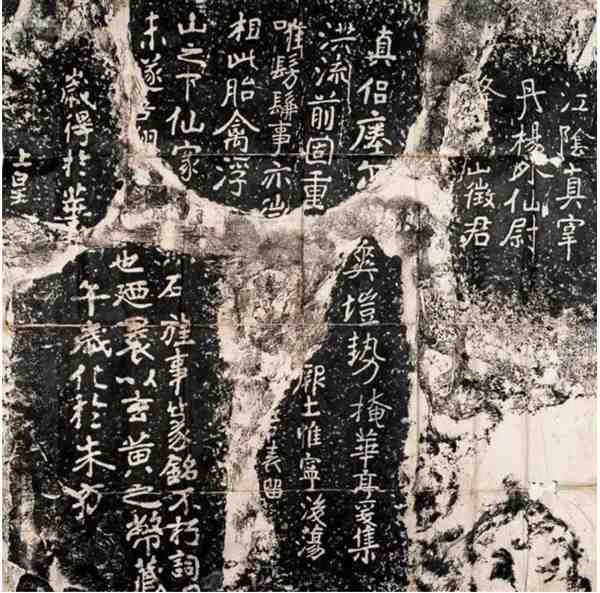 江陰真宰
丹楊外仙尉
山徵君
真侶瘞尔
洪流前固重
唯髣髴事亦
相此胎禽浮
山之下仙家
未遂吾翔
歲得於華
上皇
爽塏勢掩華亭爰集
厥土惟寧後蕩
表留
石旌事篆銘不朽詞
也廼裹以玄黄之幣藏
午歲化於朱方